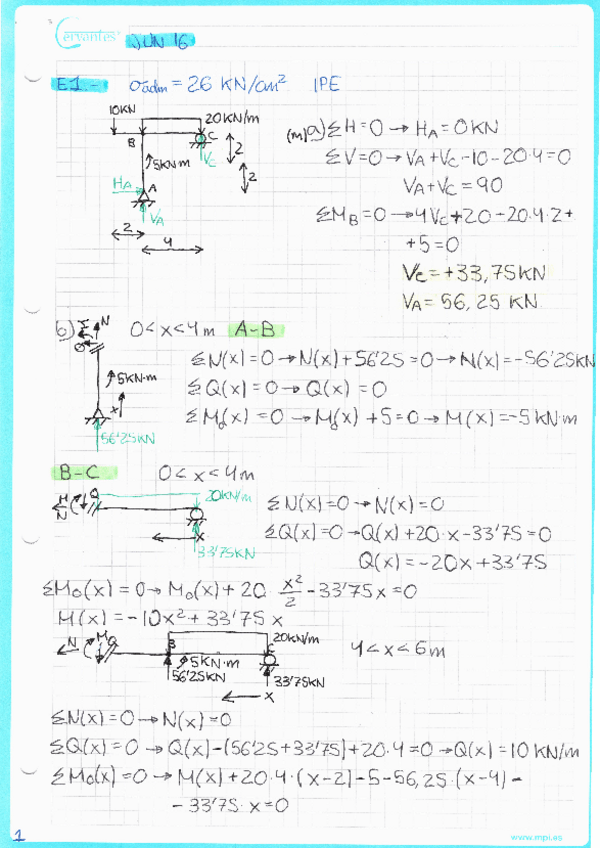 Cervantes
JUN 16
E1.- σadm = 26 KN/cm² IPE
10KN
20KN/m
B
C
5KN·m
Vc
2
2
HA
A
VA
2
4
(m)a) ΣH=0 → HA = 0KN
ΣV=0 → VA+Vc-10-20·4=0
VA+Vc = 90
ΣMB=0 → 4Vc+20-20·4·2+
+5=0
Vc = +33,75KN
VA = 56,25 KN
b) 0<x<4m A-B
N
5KN·m
x
56'25KN
ΣN(x)=0 → N(x)+56'25=0 → N(x)=-56'25KN
ΣQ(x)=0 → Q(x)=0
ΣMo(x)=0 → Mo(x)+5=0 → M(x)=-5KN·m
B-C 0<x<4m
M
Q
N
20KN/m
x
33'75KN
ΣN(x)=0 → N(x)=0
ΣQ(x)=0 → Q(x)+20·x-33'75=0
Q(x)=-20x+33'75
ΣMo(x)=0 → Mo(x)+20 x²/2 -33'75x=0
M(x)=-10x²+33'75x
N
M
Q
B
C
20KN/m
5KN·m
56'25KN
33'75KN
x
4<x<6m
ΣN(x)=0 → N(x)=0
ΣQ(x)=0 → Q(x)-(56'25+33'75)+20·4=0 → Q(x)=10KN/m
ΣMo(x)=0 → M(x)+20·4·(x-2)-5-56,25·(x-4)-
-33'75·x=0
1
www.mpi.es